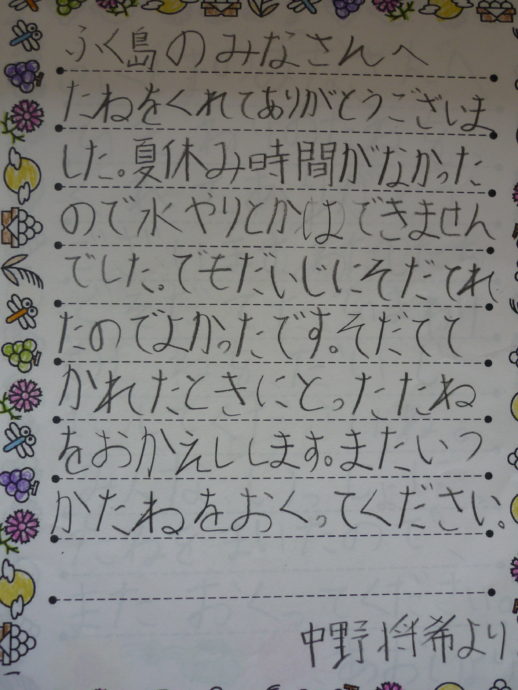 ふく島のみなさんへ
たねをくれてありがとうございま
した。夏休み時間がなかった
ので水やりとかはできません
でした。でもだいじにそだてれ
たのでよかったです。そだてて
かれたときにとったたね
をおかえしします。またいつ
かたねをおくってください。
中野将希より